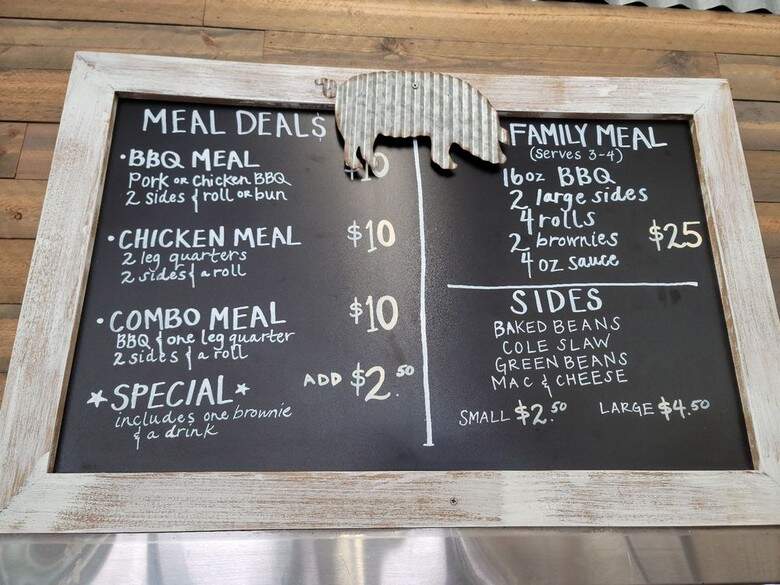 MEAL DEAL$
• BBQ MEAL
Pork or Chicken BBQ
2 sides & roll or bun
• CHICKEN MEAL $10
2 leg quarters
2 sides & a roll
• COMBO MEAL $10
BBQ & one leg quarter
2 sides & a roll
★ SPECIAL ★ ADD $2.50
includes one brownie
& a drink
FAMILY MEAL
(serves 3-4)
16oz BBQ
2 large sides
4 rolls
2 brownies $25
4 oz sauce
SIDES
BAKED BEANS
COLE SLAW
GREEN BEANS
MAC & CHEESE
SMALL $2.50 LARGE $4.50